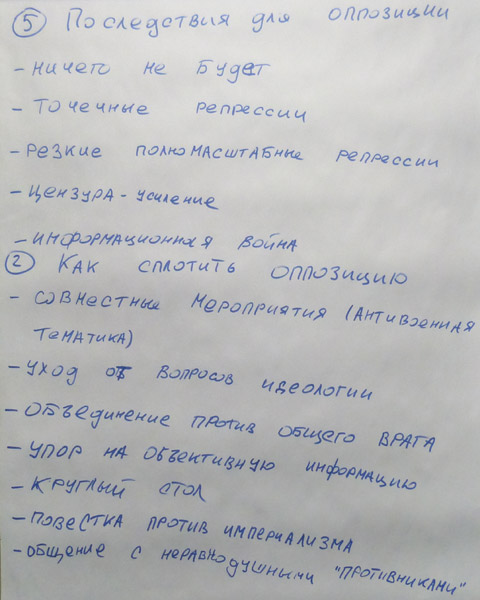 5 Последствия для оппозиции
- ничего не будет
- точечные репрессии
- резкие полномасштабные репрессии
- цензура - усиление
- информационная война
2 Как сплотить оппозицию
- совместные мероприятия (антивоенная
тематика)
- уход от вопросов идеологии
- объединение против общего врага
- упор на объективную информацию
- круглый стол
- повестка против империализма
- общение с неравнодушными "противниками"